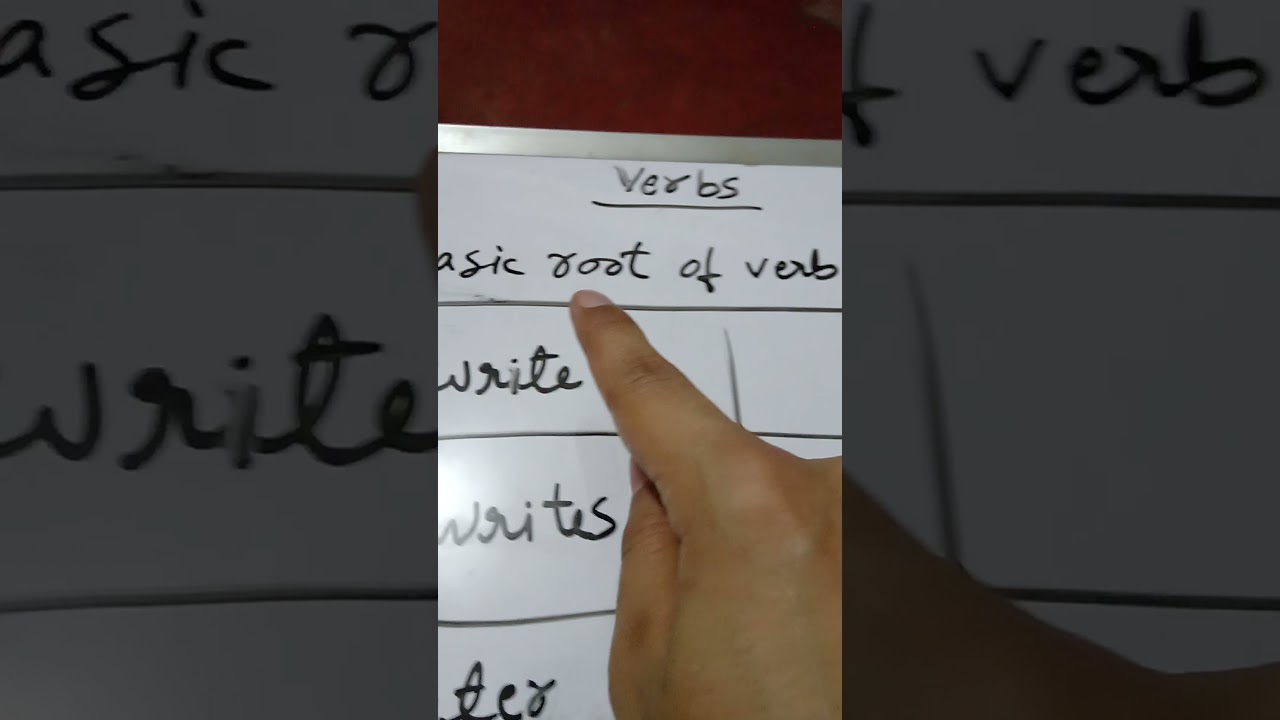 Verbs
asic root of verb
write
writes
ter